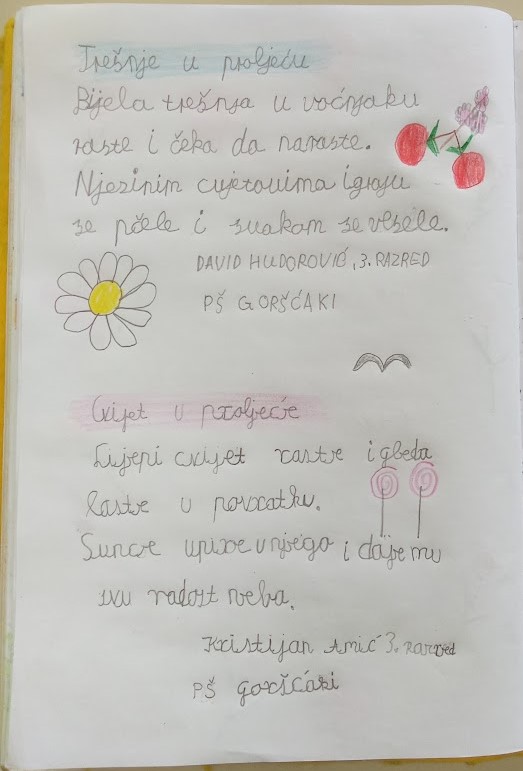 Trešnje u proljeću
Bijela trešnja u voćnjaku
raste i čeka da naraste.
Njezinim cvjetovima igraju
se pčele i svakom se vesele.
DAVID HUDOROVIĆ, 3. RAZRED
PŠ GORŠĆAKI
Cvijet u proljeće
Lijepi cvijet raste i gleda
laste u povratku.
Sunce upire u njega i daje mu
svu radost neba.
Kristijan Amić 3. Razred
PŠ GORŠĆAKI